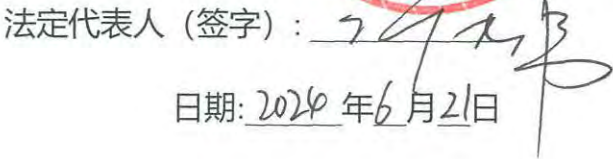 法定代表人（签字）：
日期: 2024 年 6 月 21 日